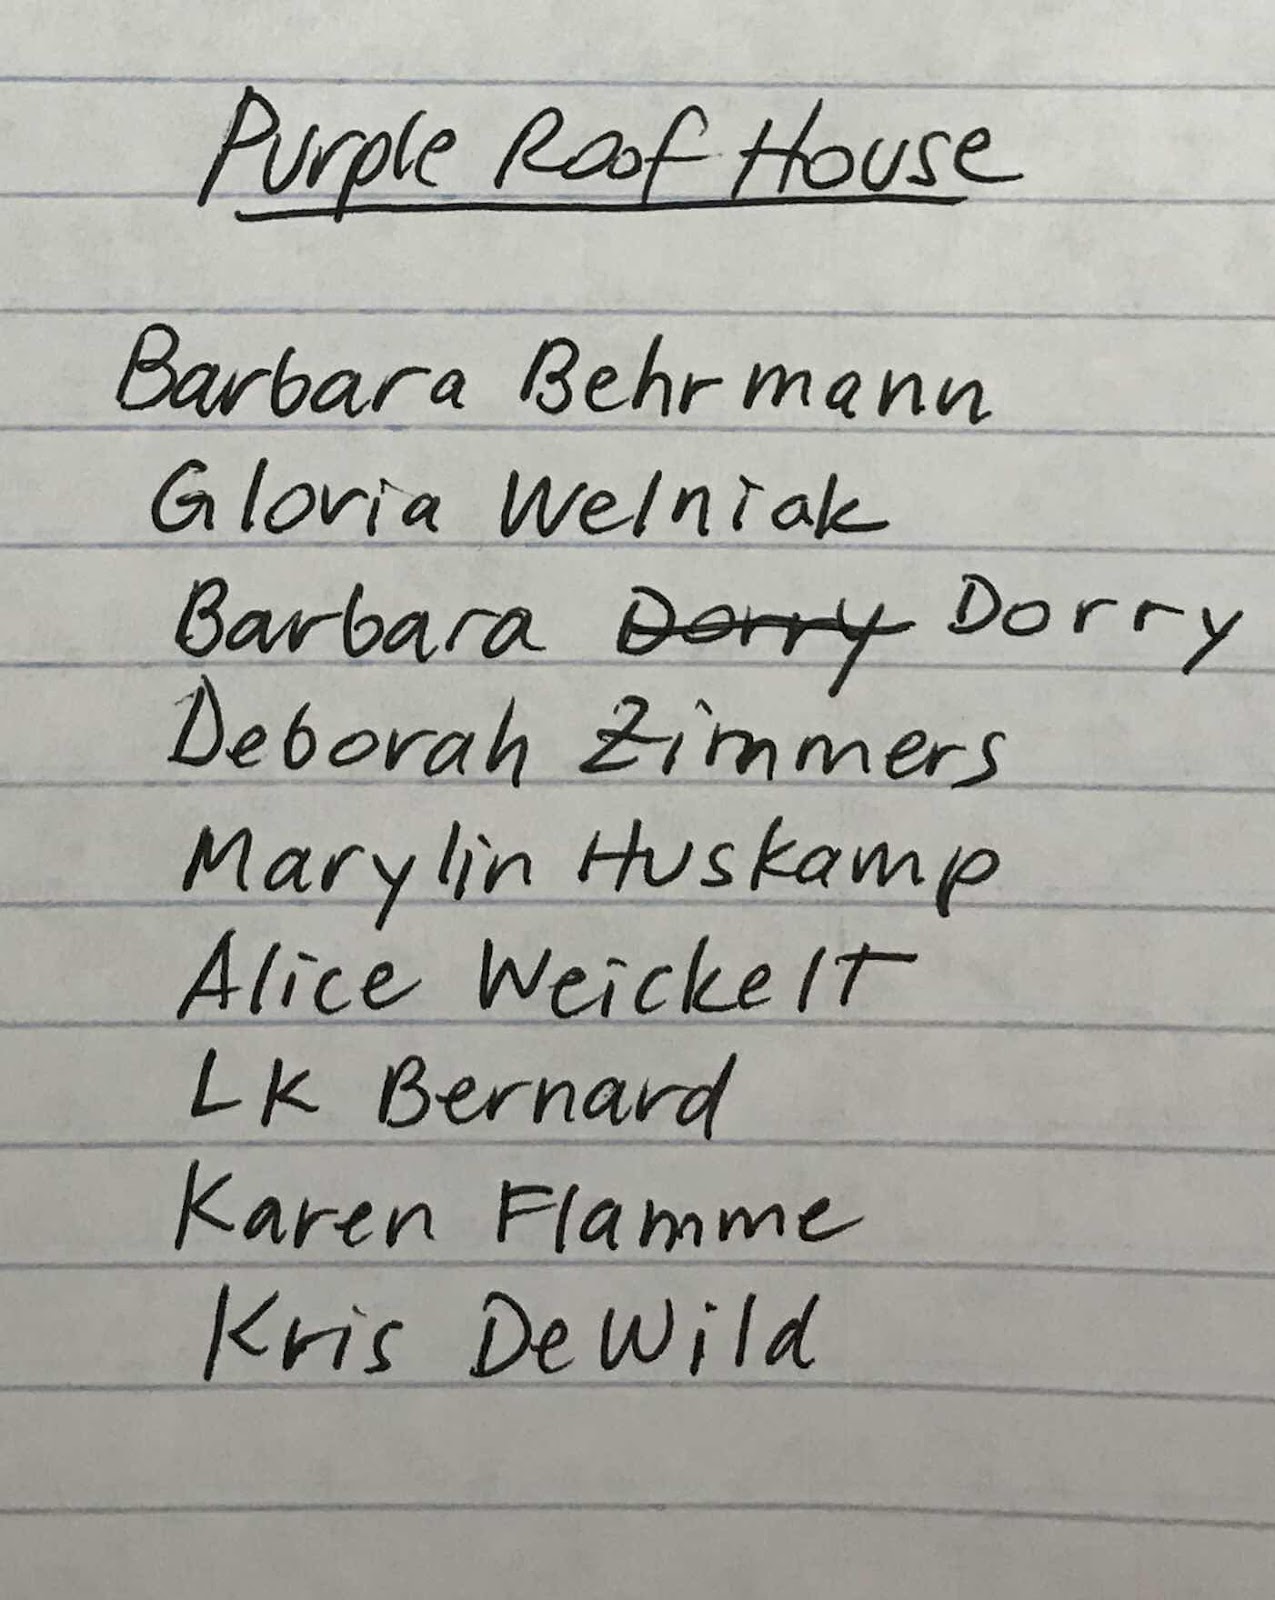 Purple Roof House
Barbara Behrmann
Gloria Welniak
Barbara Dorry Dorry
Deborah Zimmers
Marylin Huskamp
Alice Weickelt
LK Bernard
Karen Flamme
Kris DeWild